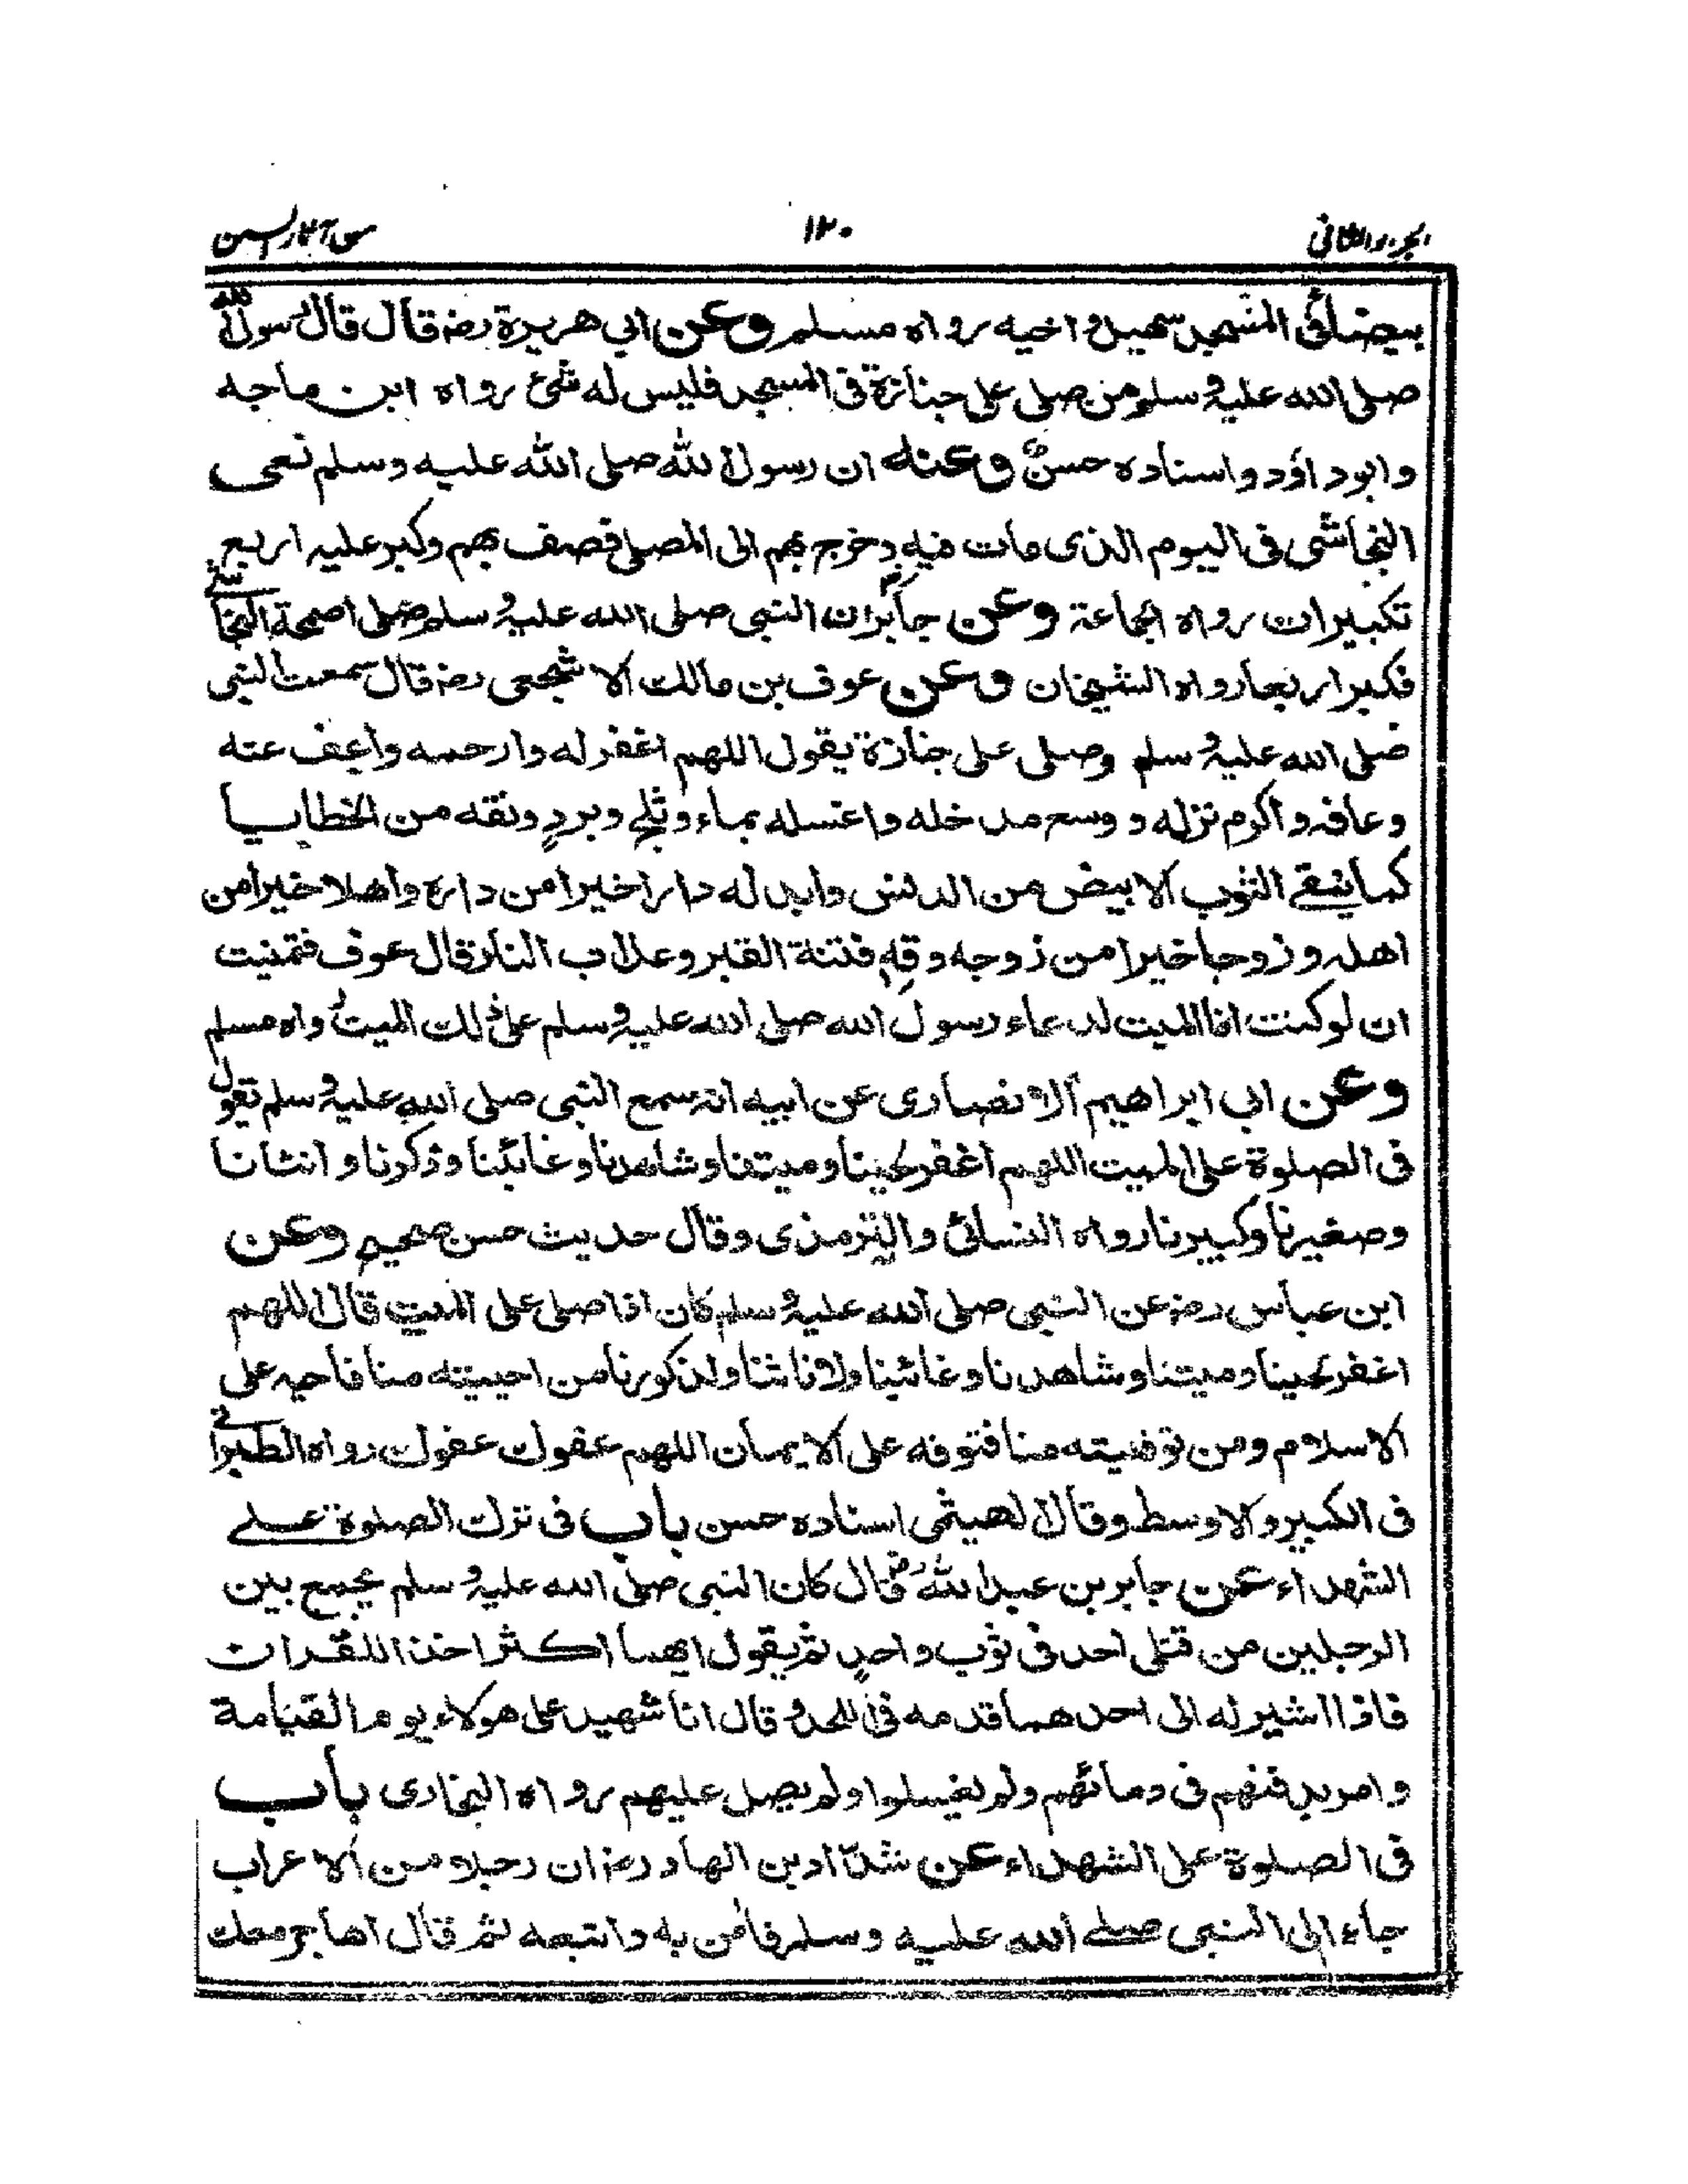 الجزء الثاني ١٢٠ من آثار السنن
بيضاء في المسجد سهيل واخيه رواه مسلم وعن ابي هريرة رضـ قال قال رسول الله
صلى الله عليه وسلم من صلى على جنازة في المسجد فليس له شئ رواه ابن ماجه
وابوداؤد واسناده حسن وعنه ان رسول الله صلى الله عليه وسلم نعى
النجاشى فى اليوم الذى مات فيه وخرج بهم الى المصلى فصف بهم وكبر عليه اربع
تكبيرات رواه الجماعة وعن جابر ان النبي صلى الله عليه وسلم صلى اصحمة النجاشي
فكبر اربعا رواه الشيخان وعن عوف بن مالك الاشجعى رضـ قال سمعت النبي
صلى الله عليه وسلم وصلى على جنازة يقول اللهم اغفر له وارحمه واعف عنه
وعافه واكرم نزله و وسع مدخله واغسله بماء وثلج وبردٍ ونقه من الخطايا
كما ينقى الثوب الابيض من الدنس وابدله دارا خيرا من داره واهلا خيرا من
اهله وزوجا خيرا من زوجه وقه فتنة القبر وعذاب النار قال عوف فتمنيت
ان لو كنت انا الميت لدعاء رسول الله صلى الله عليه وسلم على ذلك الميت رواه مسلم
وعن ابي ابراهيم الانصارى عن ابيه انه سمع النبي صلى الله عليه وسلم يقول
فى الصلوة على الميت اللهم اغفر لحينا وميتنا وشاهدنا وغائبنا وذكرنا وانثانا
وصغيرنا وكبيرنا رواه النسائى والترمذى وقال حديث حسن صحيح وعن
ابن عباس رضـ عن النبي صلى الله عليه وسلم كان اذا صلى على الميت قال اللهم
اغفر لحينا وميتنا وشاهدنا وغائبنا ولاناثنا ولذكورنا من احييته منا فاحيه على
الاسلام ومن توفيته منا فتوفه على الايمان اللهم عفوك عفوك رواه الطبراني
فى الكبير والاوسط وقال الهيثمى اسناده حسن باب فى ترك الصلوة على
الشهداء عن جابر بن عبد الله رضـ قال كان النبي صلى الله عليه وسلم يجمع بين
الرجلين من قتلى احد فى ثوب واحدٍ ثم يقول ايهما اكثر اخذا للقرآن
فاذا اشير له الى احدهما قدمه فى اللحد وقال انا شهيد على هولاء يوم القيامة
وامر بدفنهم فى دمائهم ولم يغسلوا ولم يصل عليهم رواه البخارى باب
فى الصلوة على الشهداء عن شدّاد بن الهاد رضـ ان رجلا من الاعراب
جاء الى النبي صلى الله عليه وسلم فآمن به واتبعه ثم قال اهاجر معك